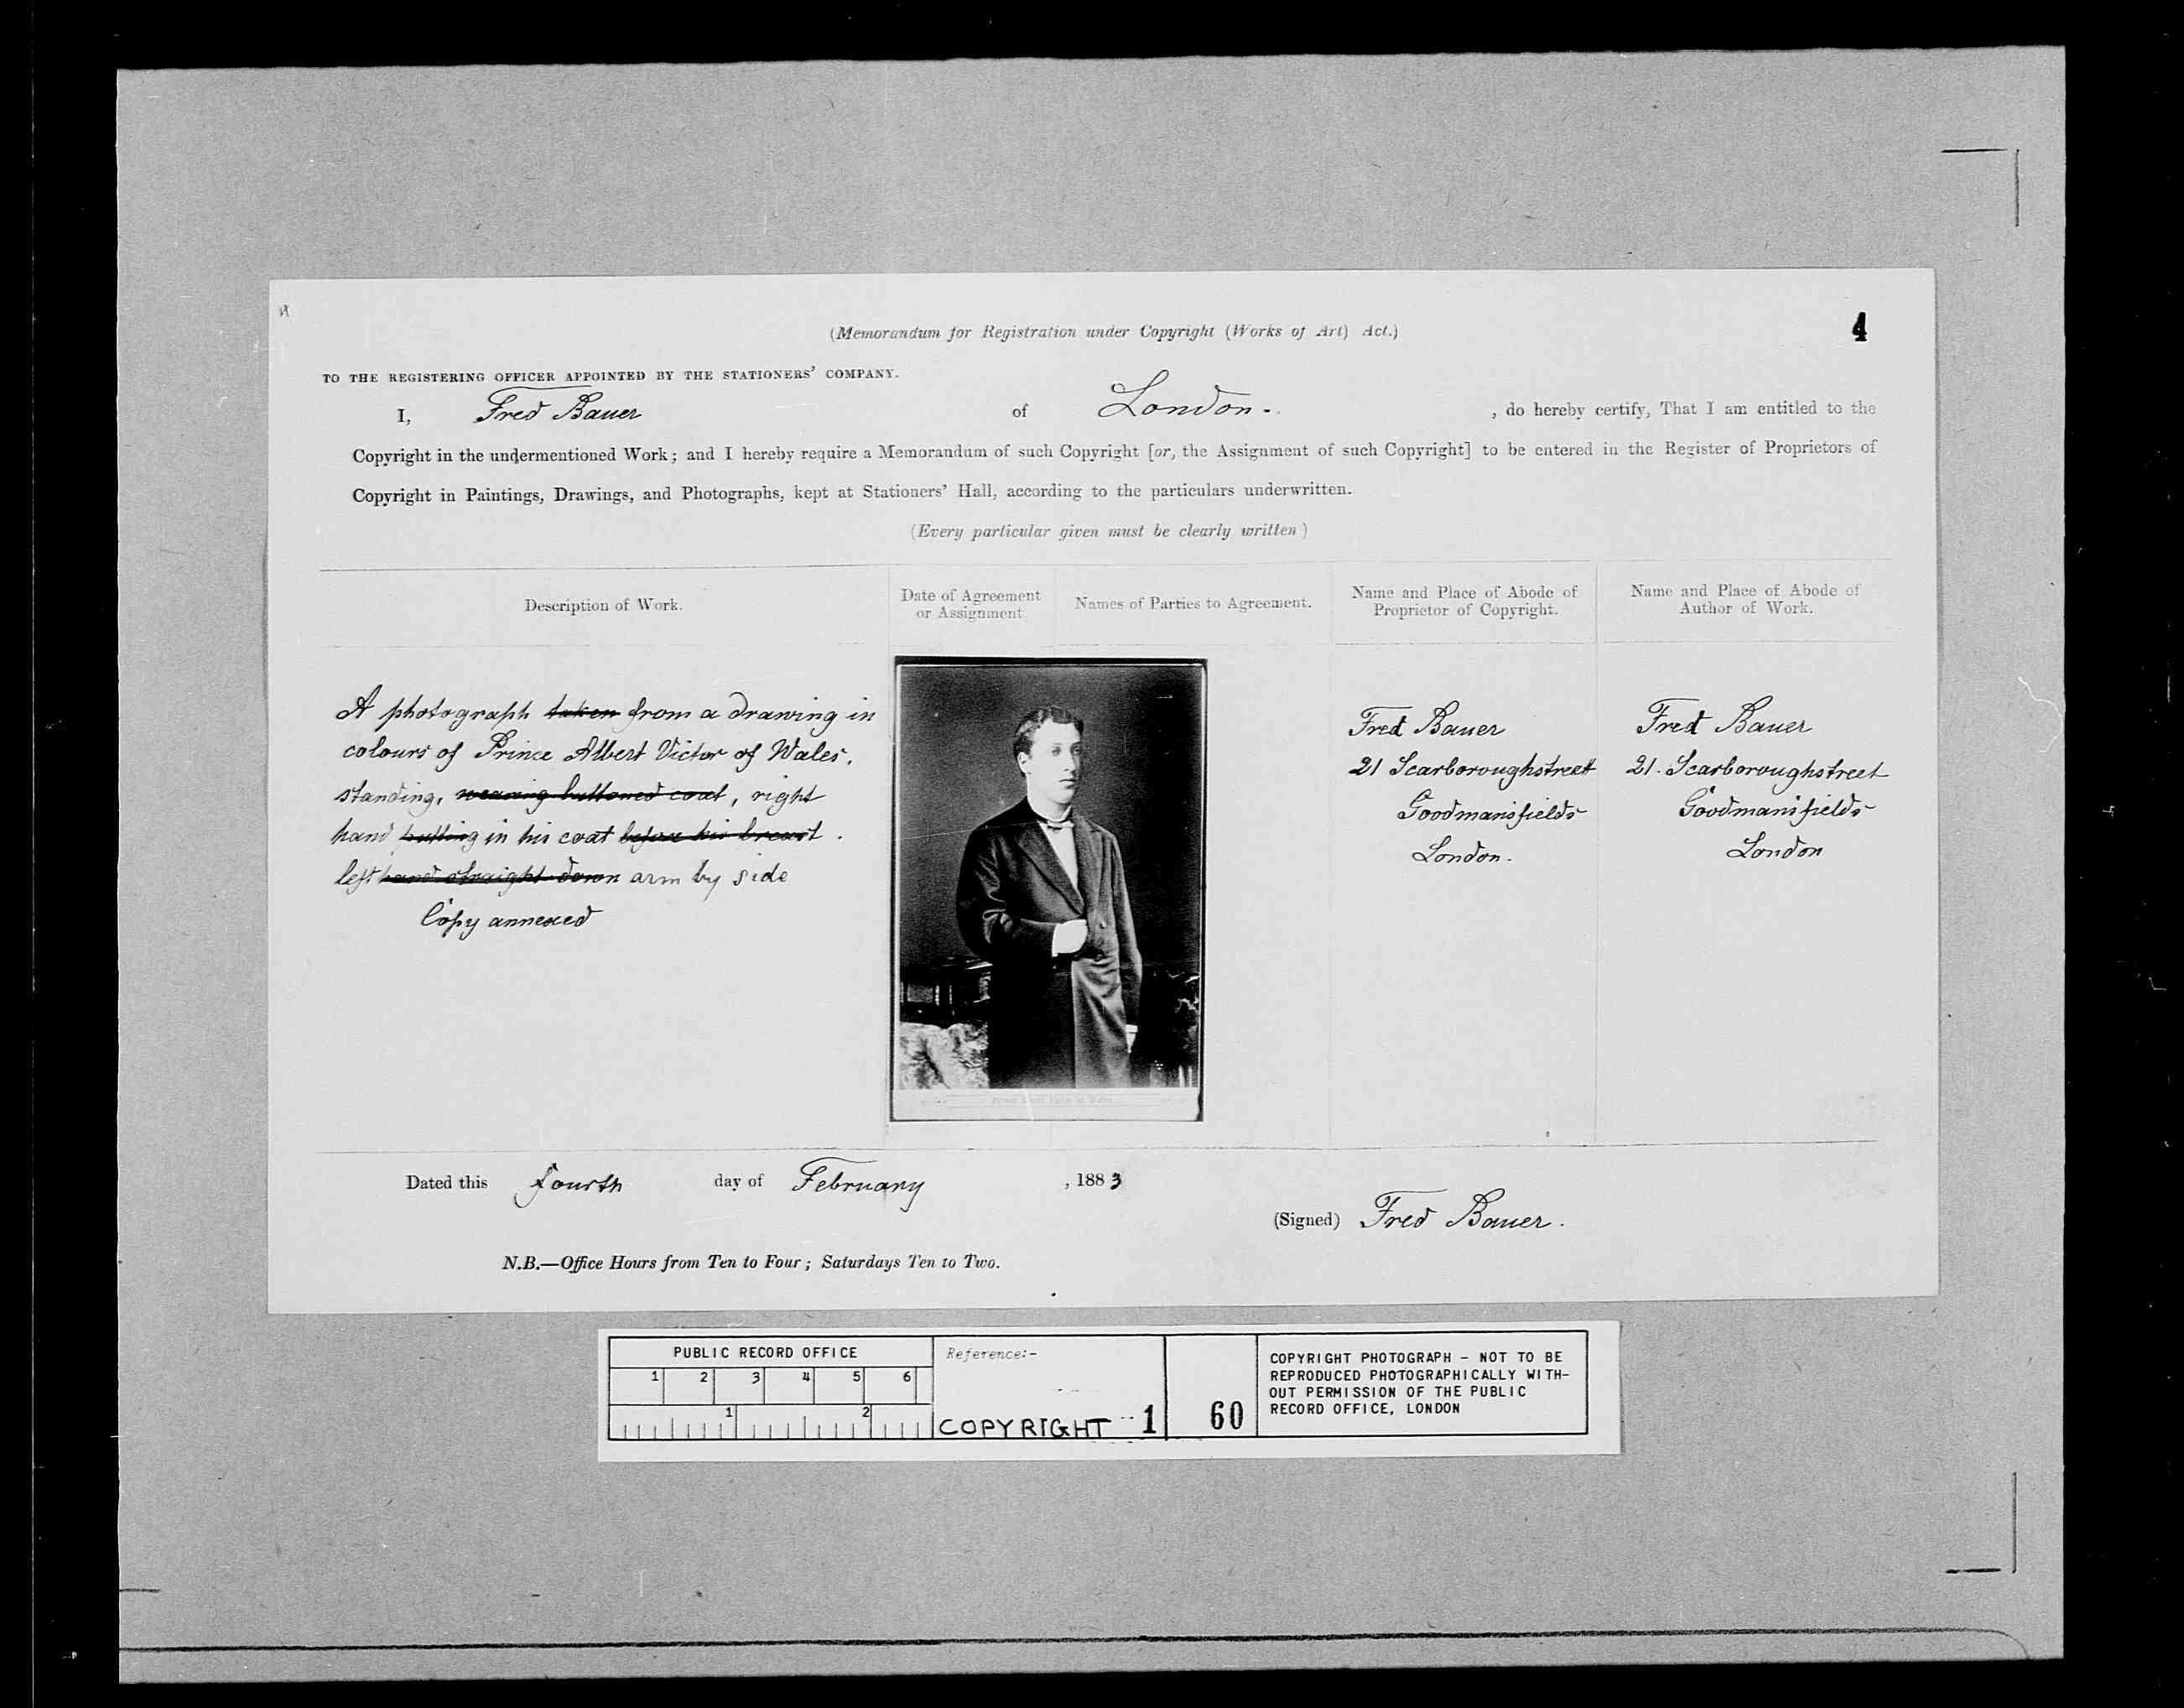 (Memorandum for Registration under Copyright (Works of Art) Act.)
4
TO THE REGISTERING OFFICER APPOINTED BY THE STATIONERS' COMPANY.
I, Fred Bauer of London. , do hereby certify, That I am entitled to the
Copyright in the undermentioned Work; and I hereby require a Memorandum of such Copyright [or, the Assignment of such Copyright] to be entered in the Register of Proprietors of
Copyright in Paintings, Drawings, and Photographs, kept at Stationers' Hall, according to the particulars underwritten.
(Every particular given must be clearly written)
Description of Work.
Date of Agreement
or Assignment.
Names of Parties to Agreement.
Name and Place of Abode of
Proprietor of Copyright.
Name and Place of Abode of
Author of Work.
A photograph taken from a drawing in
colours of Prince Albert Victor of Wales.
standing, wearing buttoned coat, right
hand putting in his coat before his breast.
left hand straight down arm by side
Copy annexed
Fred Bauer
21 Scarboroughstreet
Goodmansfields
London.
Fred Bauer
21. Scarboroughstreet
Goodmansfields
London
Dated this fourth day of February , 1883
(Signed) Fred Bauer.
N.B.—Office Hours from Ten to Four; Saturdays Ten to Two.
PUBLIC RECORD OFFICE
1 2 3 4 5 6
1 2
Reference:-
COPYRIGHT 1
60
COPYRIGHT PHOTOGRAPH - NOT TO BE
REPRODUCED PHOTOGRAPHICALLY WITH-
OUT PERMISSION OF THE PUBLIC
RECORD OFFICE, LONDON